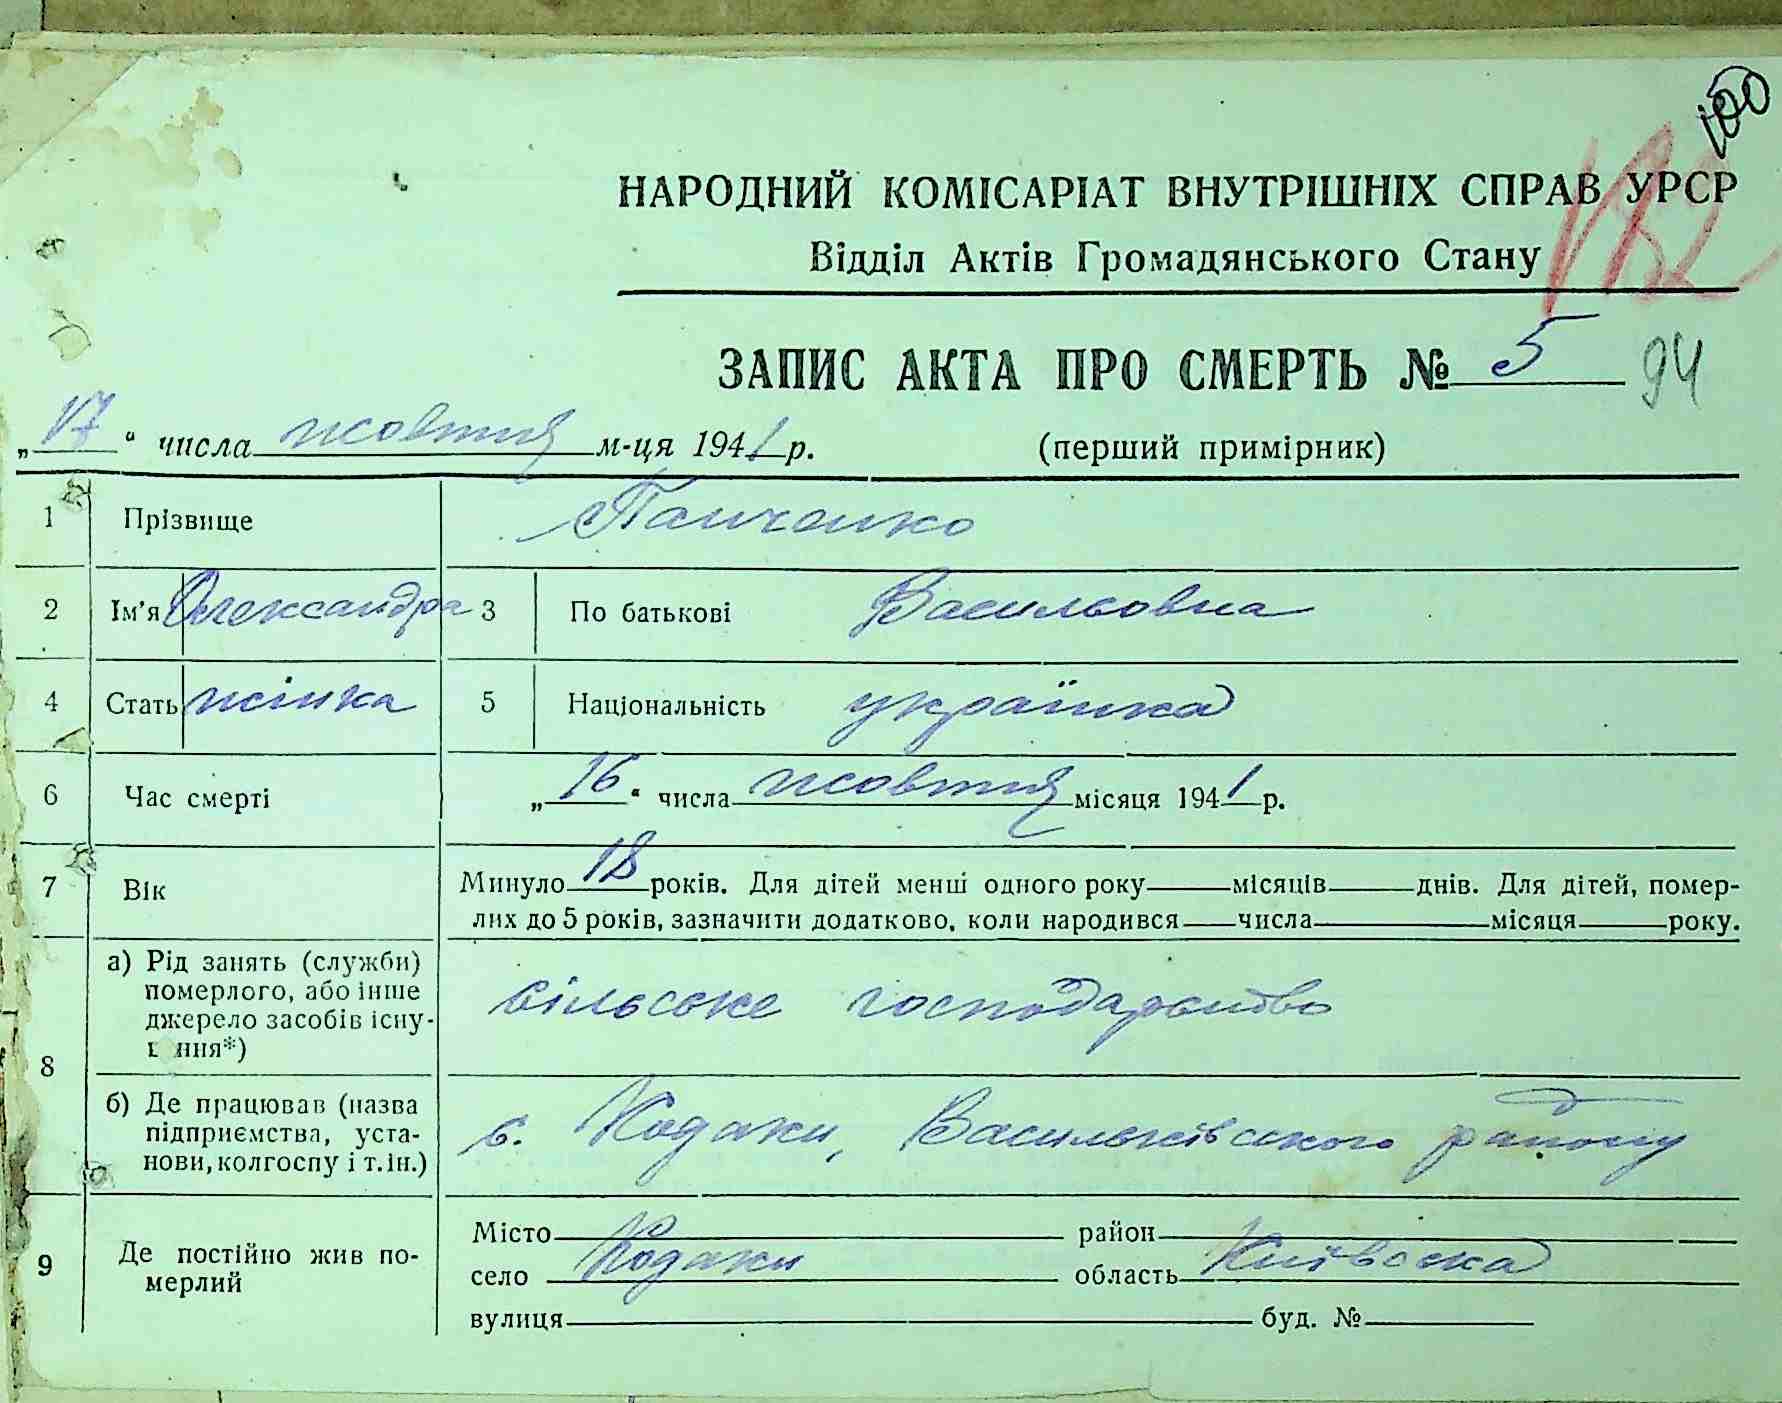 100
НАРОДНИЙ КОМІСАРІАТ ВНУТРІШНІХ СПРАВ УРСР
192
Відділ Актів Громадянського Стану
ЗАПИС АКТА ПРО СМЕРТЬ № 5 94
„17“ числа жовтня м-ця 1941 р. (перший примірник)
1 Прізвище Панченко
2 Ім'я Олександра 3 По батькові Васильовна
4 Стать жінка 5 Національність українка
6 Час смерті „16“ числа жовтня місяця 1941 р.
7 Вік Минуло 18 років. Для дітей менші одного року місяців днів. Для дітей, помер-
лих до 5 років, зазначити додатково, коли народився числа місяця року.
8 а) Рід занять (служби) померлого, або інше джерело засобів існу- ння*) сільське господарство
б) Де працював (назва підприємства, уста- нови, колгоспу і т. ін.) с. Кодаки, Васильківського району
9 Де постійно жив по- мерлий Місто район
село Кодаки область Київська
вулиця буд. №